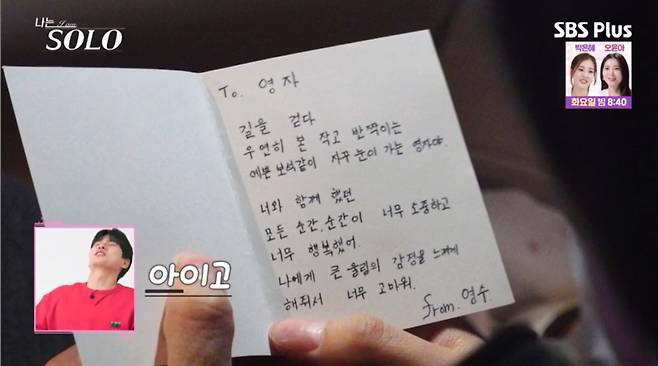 나는 I am
SOLO
SBS Plus
박은혜 오윤아
화요일 밤 8:40
To. 영자
길을 걷다
우연히 본 작고 반짝이는
예쁜 보석같이 자꾸 눈이 가는 영자야.
너와 함께 했던
모든 순간, 순간이 너무 소중하고
너무 행복했어.
나에게 큰 울림의 감정을 느끼게
해줘서 너무 고마워.
from. 영수
아이고